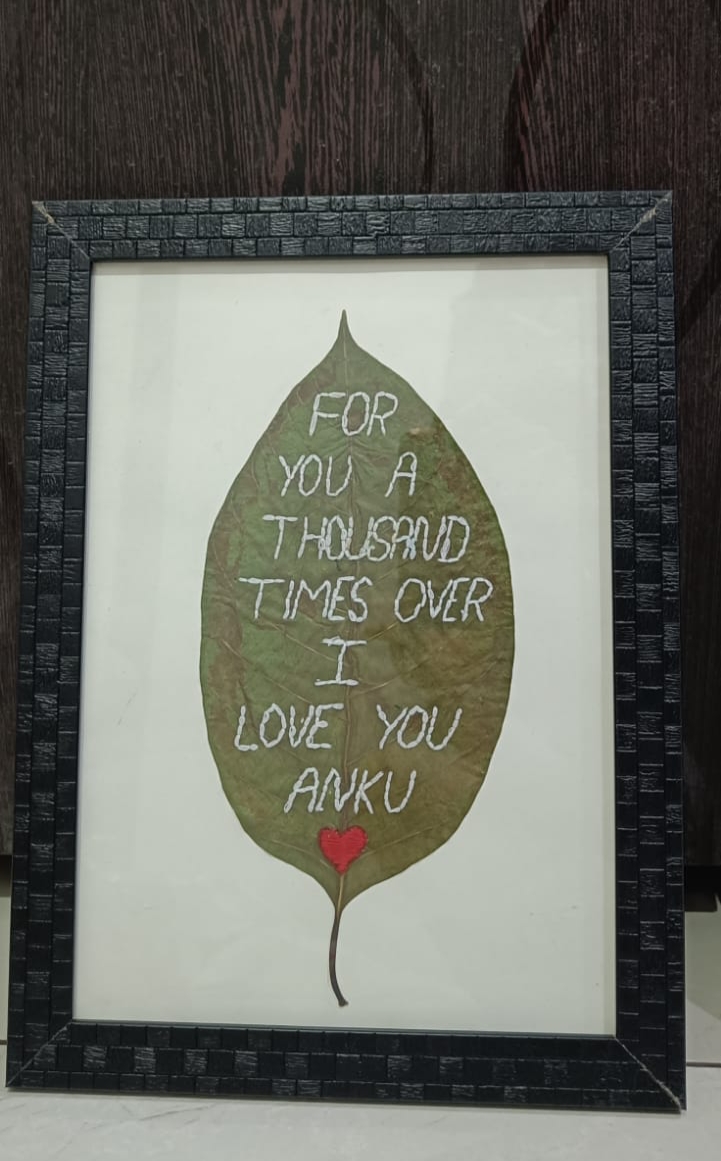 FOR
YOU A
THOUSAND
TIMES OVER
I
LOVE YOU
ANKU